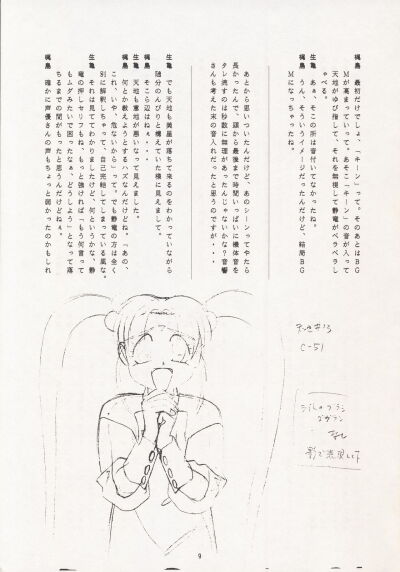 梶島 最初だけでしょ、「キーン」って。そのあとはBG
Mが高まっていって。あそこ「キーン」の音が入って
天地がゆび指して、それを無視して静竜がベラベラし
ゃべる。
生亀 あぁ、そこの所は音付いてなかったね。
梶島 うん、そういうイメージだったんだけど、結局BG
Mになっちゃったね。
あとから思いついたんだけど、あのシーンってやたら
長かったんで、頭から最後まで時間いっぱいに機体音を
タレ流すのは秒数に無理があったんじゃないかな？音響
さんも考えた末の音入れだったと思うのですが・・・
生亀 でも天地も美星が落ちて来るのをわかっていながら
随分のんびりと構えていた様に見えまして。
梶島 そこら辺はねぇ・・・
生亀 天地も意地が悪いなって見えました。
梶島 何とか教えようとするハズなんだけどね。「あの、
これ、いや、危ないから」って。でも静竜の方は全く
別に解釈しちゃって、自己完結してしまっている風な。
生亀 それは見ててわかりましたけど、何というかな、静
竜の押しセリフもね、もっと強ければ「もう何言って
もムダみたいで困ったなぁ、どうしよう」となって落
ちるまでの間がもったなぁと思うんだけどねぇ。
梶島 確かに声優さんの声もちょっと弱かったのかもしれ
C-51
9